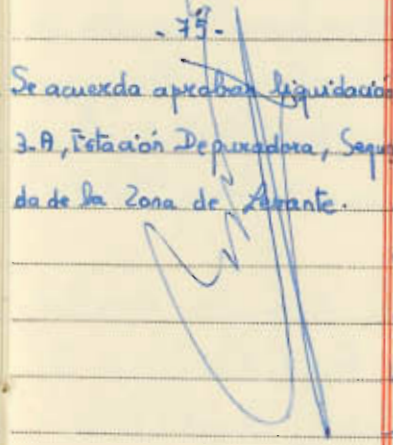 - 75 -
Se acuerda aprobar liquidación
3-A, Estación Depuradora, Segun
da de la Zona de Levante.